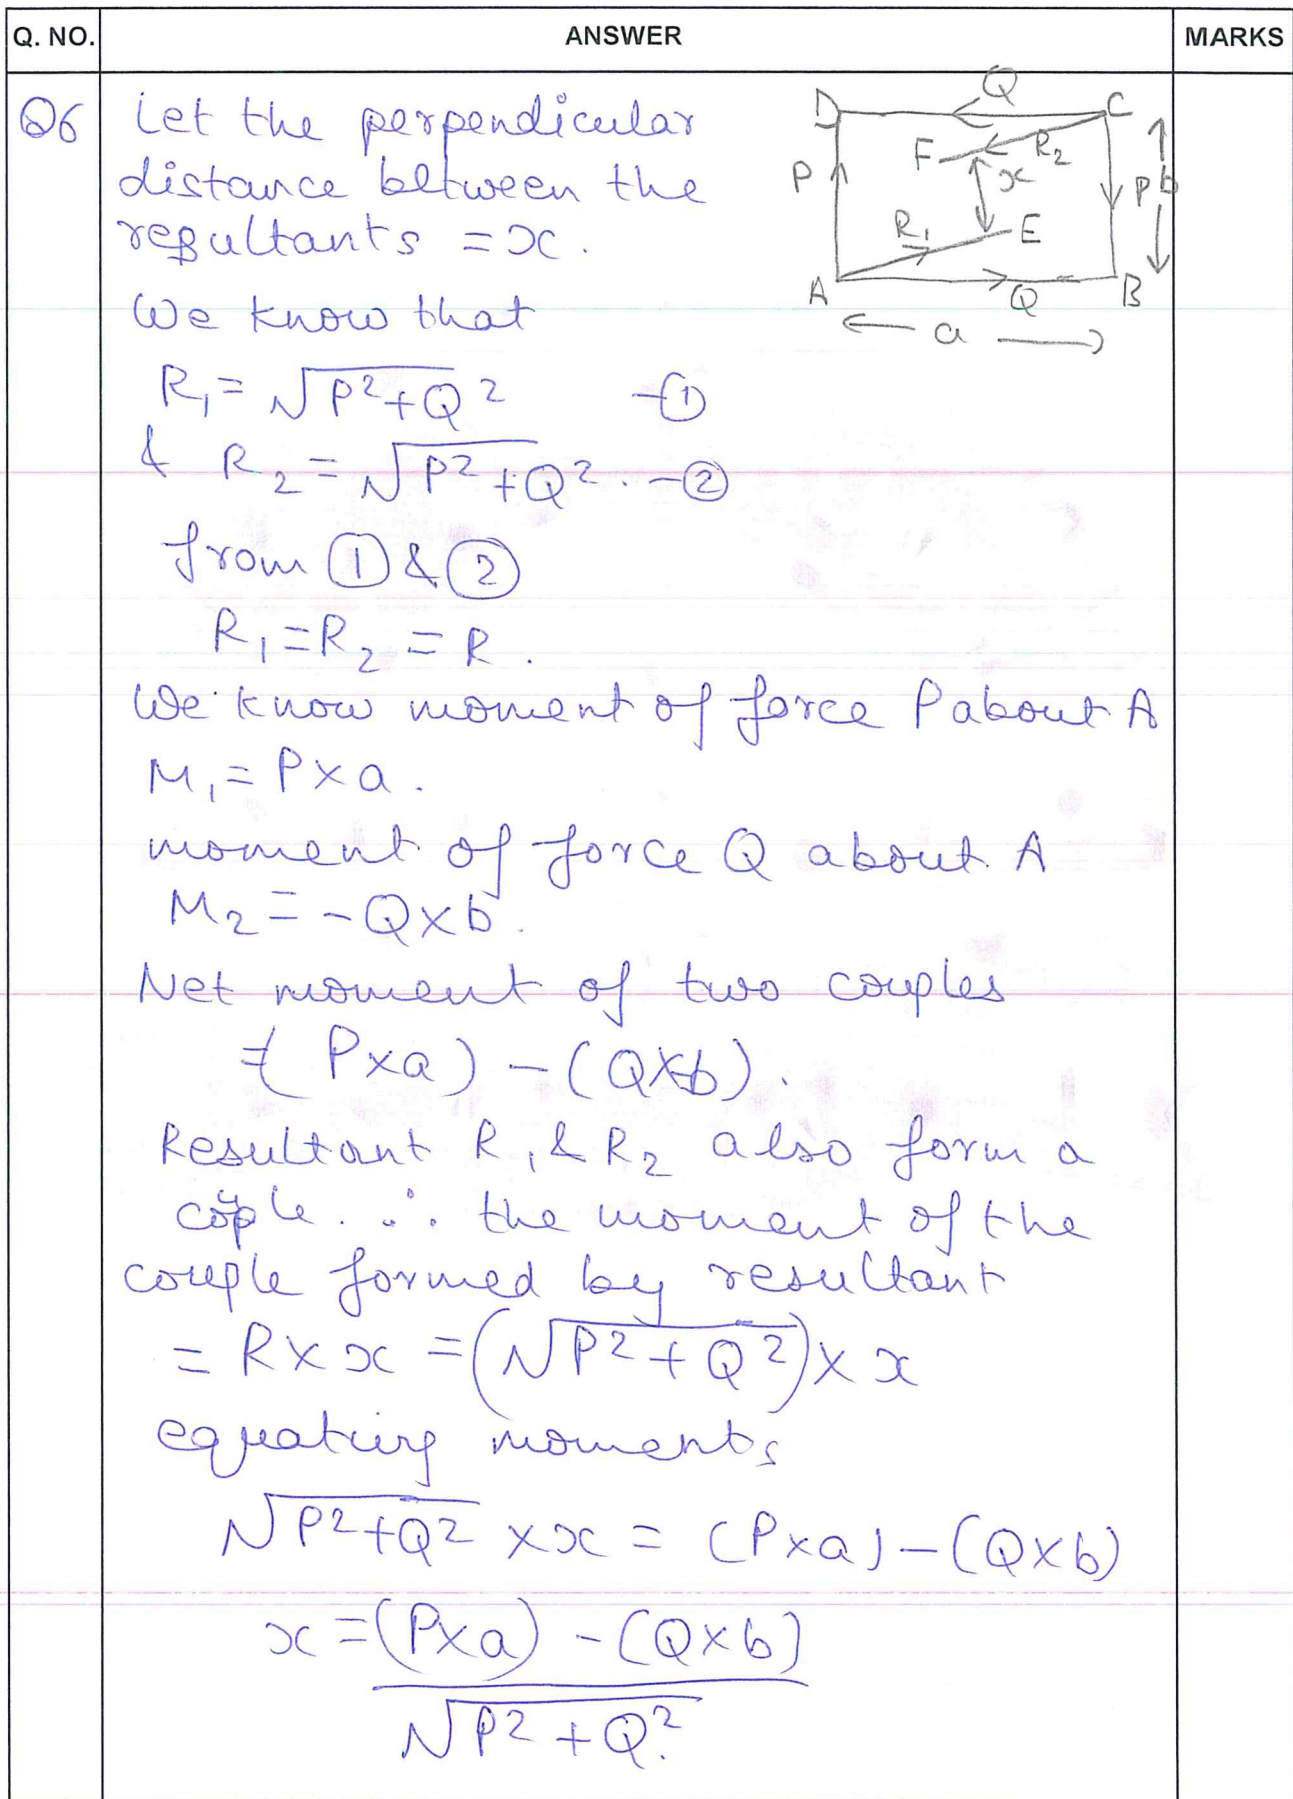 Q. NO. ANSWER MARKS
Q6 Let the perpendicular
distance between the
resultants = x.
D Q C
F R2
P x P b
R1 E
A Q B
a
We know that
R1 = √P²+Q² -①
& R2 = √P²+Q². -②
from ① & ②
R1 = R2 = R.
We know moment of force P about A
M1 = P×a.
moment of force Q about A
M2 = -Q×b.
Net moment of two couples
= (P×a) - (Q×b).
Resultant R1 & R2 also form a
couple. ∴ the moment of the
couple formed by resultant
= R×x = (√P²+Q²)×x
equating moments
√P²+Q² ×x = (P×a) - (Q×b)
x = (P×a) - (Q×b)
√P²+Q².